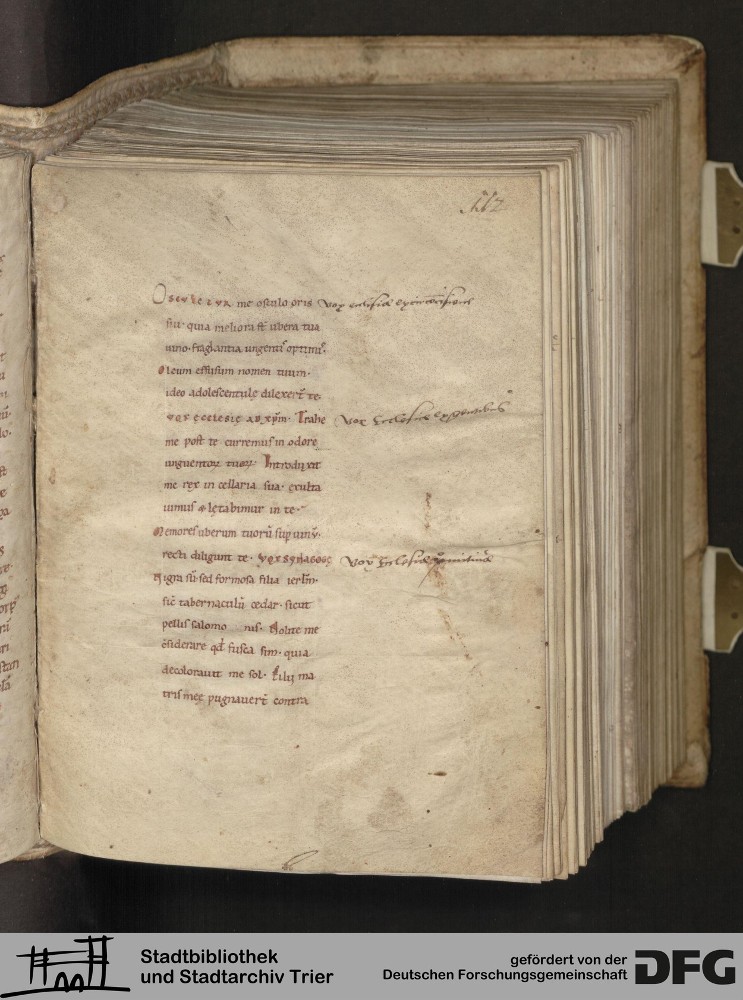 162
OSCVLETVR me osculo oris vox ecclesie
sui· quia meliora st̄ ubera tua
uino· fraglantia ungenti᷒ optimi᷒·
Oleum effusum nomen tuum·
ideo adolescentulę dilexert̄ te·
vox ęcclesię ad xp̄m· Trahe Vox Ecclesie
me post te curremus in odore
unguentoꝝ tuoꝝ· Introduxit
me rex in cellaria sua· exulta
uimus & lętabimur in te·
Memores uberum tuorū sup uinū·
recti diligunt te· vox synagogę Vox Ecclesie primitiue
Nigra sū sed formosa filia ierłm·
sic̄ tabernaculū cedar· sicut
pellis salomo nis· Nolite me
c̄siderare qd̄ fusca sim· quia
decolorauit me sol· Filii ma
tris meę pugnauert̄ contra
Stadtbibliothek
und Stadtarchiv Trier
gefördert von der
Deutschen Forschungsgemeinschaft
DFG